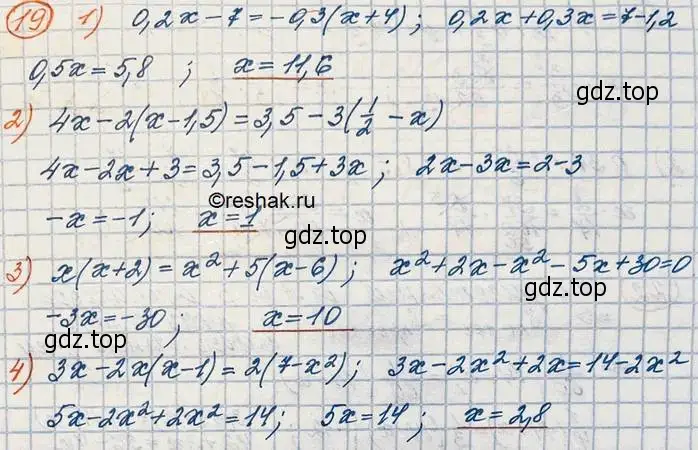 19 1) 0,2x - 7 = -0,3(x+4); 0,2x + 0,3x = 7 - 1,2
0,5x = 5,8; x = 11,6
2) 4x - 2(x - 1,5) = 3,5 - 3(1/2 - x)
4x - 2x + 3 = 3,5 - 1,5 + 3x; 2x - 3x = 2 - 3
©reshak.ru
-x = -1; x = 1
gdz.top
gdz.top
3) x(x+2) = x² + 5(x-6); x² + 2x - x² - 5x + 30 = 0
-3x = -30; x = 10
gdz.top
4) 3x - 2x(x-1) = 2(7-x²); 3x - 2x² + 2x = 14 - 2x²
5x - 2x² + 2x² = 14; 5x = 14; x = 2,8
gdz.top